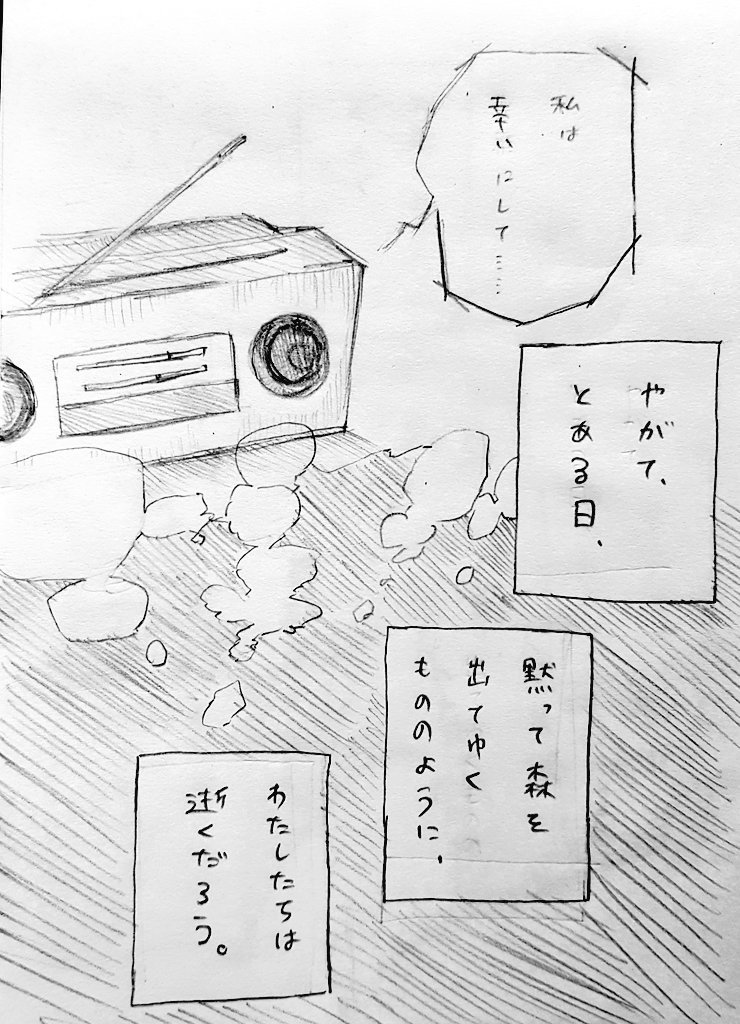 私は
幸いにして……
やがて、
とある日、
黙って森を
出てゆく
もののように、
わたしたちは
逝くだろう。